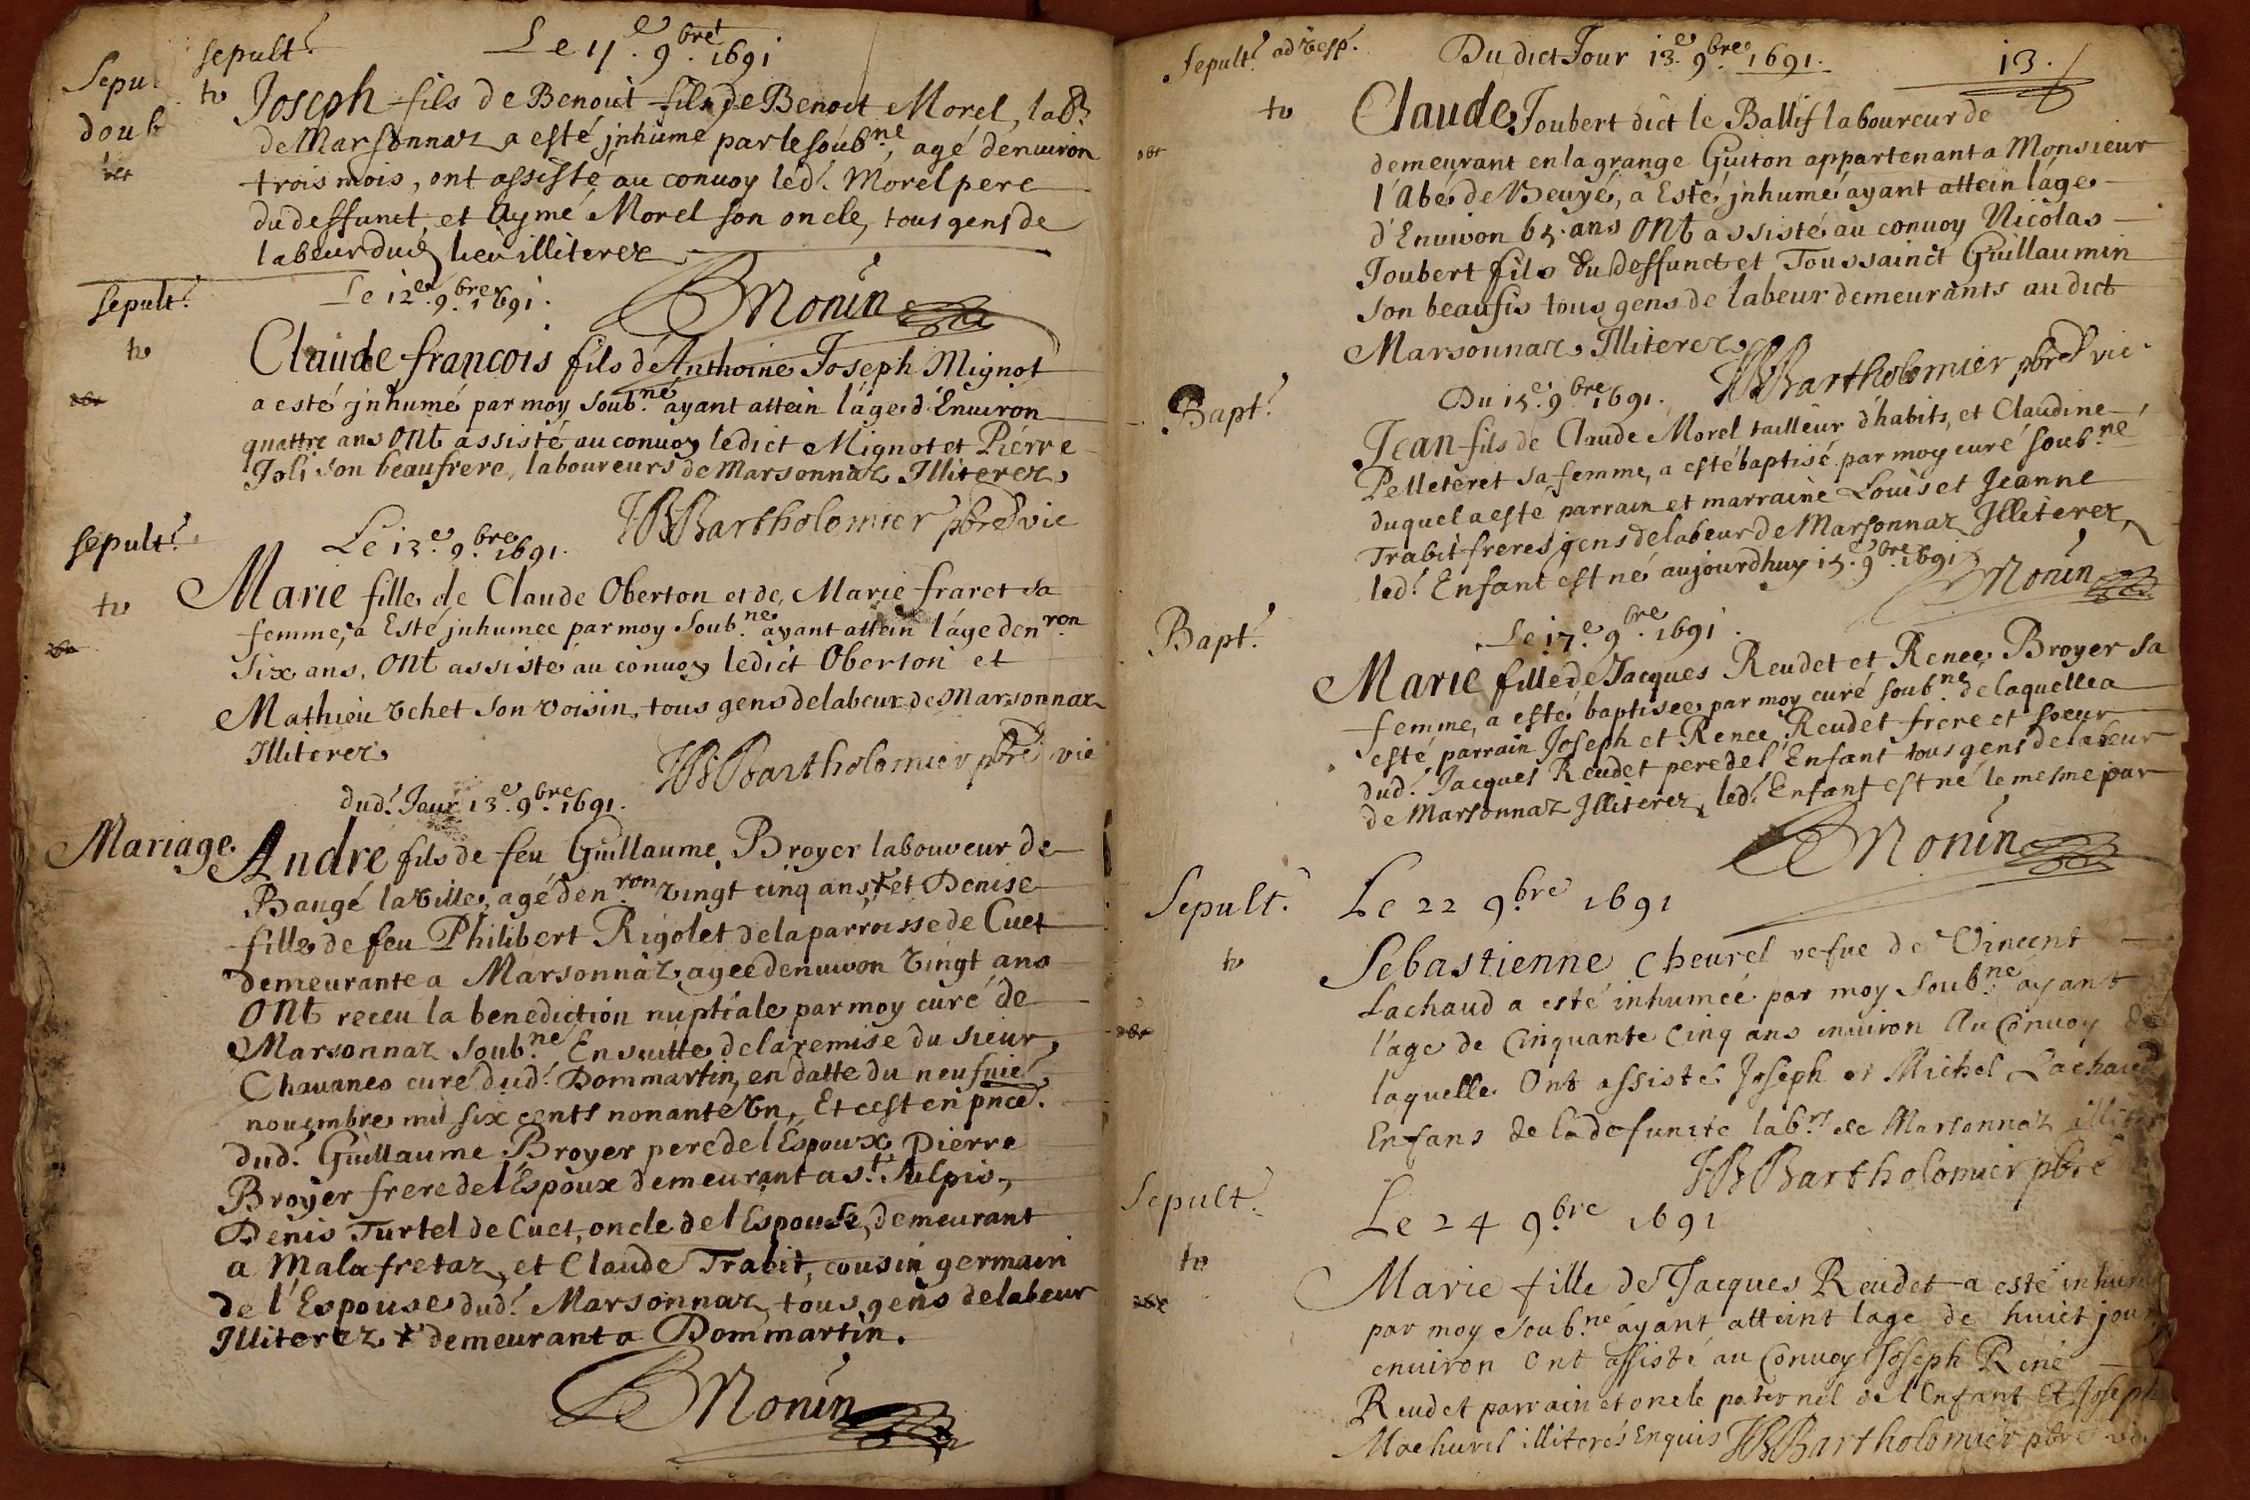 Sepult.
Le 11.e 9.bre 1691
Sepu
doub
to
Joseph fils de Benoit fils de Benoit Morel, lab.r
de Marsonnaz a esté jnhumé par le soub.né, agé denuiron
trois mois, ont assisté au conuoy led.t Morel pere
du deffunct, et Aymé Morel son oncle, tous gens de
labeur dud lieu illiterez
Monin
Sepult.
Le 12.e 9.bre 1691.
to
Claude françois fils d'Anthoine Joseph Mignot
a esté jnhumé par moy Soub.né ayant attein l'age d'Enuiron
quattre ans Ont assisté au conuoy ledict Mignot et Piérre
Joli son beaufrere, laboureurs de Marsonnaz Illiterez
Bartholomier pbre vic
Sepult.
Le 13.e 9.bre 1691.
to
Marie fille de Claude Oberton et de Marie fraret sa
femme, a Esté jnhumee par moy Soub.né ayant attein l'age den.ron
Six ans, Ont assisté au conuoy ledict Oberton et
Mathieu Vchet son voisin, tous gens de labeur de Marsonnaz
Illiterez
Bartholomier pbre vic
dud.t Jour 13.e 9.bre 1691.
Mariage
André fils de feu Guillaume Broyer laboureur de
Baugé la Ville, agé den.ron Vingt cinq ans, + et Denise
fille de feu Philibert Rigolet de la parroisse de Cuet
demeurante a Marsonnaz, agee denuiron Vingt ans
Ont receu la benediction nuptiale par moy curé de
Marsonnaz Soub.né En suitte de la remise du sieur
Chauanes curé dud.t Dommartin, en datte du neufuie.
nouembre mil six cents nonante Vn, Et cest en pnce.
dud.t Guillaume Broyer pere de l'Espoux Pierre
Broyer frere de l'Espoux demeurant a S.t Sulpis,
Denis Turtel de Cuet, oncle de l'Espouse, demeurant
a Malafretaz, et Claude Trabit, cousin germain
de l'Espouse dud.t Marsonnaz, tous gens de labeur
Illiterez + demeurant a Dommartin.
Monin
Sepult.
Du dict Jour 13.e 9.bre 1691.
13.
to
Claude Joubert dict le Ballif laboureur de
demeurant en la grange Guiton appartenant a Monsieur
l'Abé de Veuyé, a Esté jnhumé ayant attein l'age
d'Enuiron 65 ans Ont assisté au conuoy Nicolas
Joubert fils du deffunct et Toussainct Guillaumin
Son beaufis tous gens de labeur demeurants au dict
Marsonnaz Illiterez
Bartholomier pbre vic
Bapt.
Du 15.e 9.bre 1691.
Jean fils de Claude Morel tailleur d'habits, et Claudine
Pelleteret sa femme, a esté baptisé par moy curé Soub.né
duquel a esté parrain et marraine Louis et Jeanne
Trabit freres gens de labeur de Marsonnaz Illiterez,
led.t Enfant est né aujourdhuy 15.e 9.bre 1691
Monin
Bapt.
Le 17.e 9.bre 1691.
Marie fille de Jacques Reudet et Renee Broyer sa
femme, a esté baptisee par moy curé soub.né de laquelle a
esté parrain Joseph et Renee Reudet frere et soeur
dud.t Jacques Reudet pere de l'Enfant tous gens de labeur
de Marsonnaz Illiterez, led.t Enfant est né le mesme jour
Monin
Sepult.
Le 22 9.bre 1691
to
Sebastienne Cheurel vefue de Vincent
Lachaud a esté inhumée par moy Soub.né ayant
l'age de Cinquante Cinq ans enuiron Au Conuoy de
laquelle Ont assisté Joseph et Michel Lachaud
Enfans de la defuncte lab.rs de Marsonnaz
Bartholomier pbre
Sepult.
Le 24 9.bre 1691
to
Marie fille de Jacques Reudet a esté inhumé
par moy Soub.né ayant atteint lage de huict jour
enuiron Ont assisté au Conuoy Joseph René
Reudet parrain et oncle paternel de l'Enfant Et Joseph
Machurel illiterés Enquis Bartholomier pbre vic.